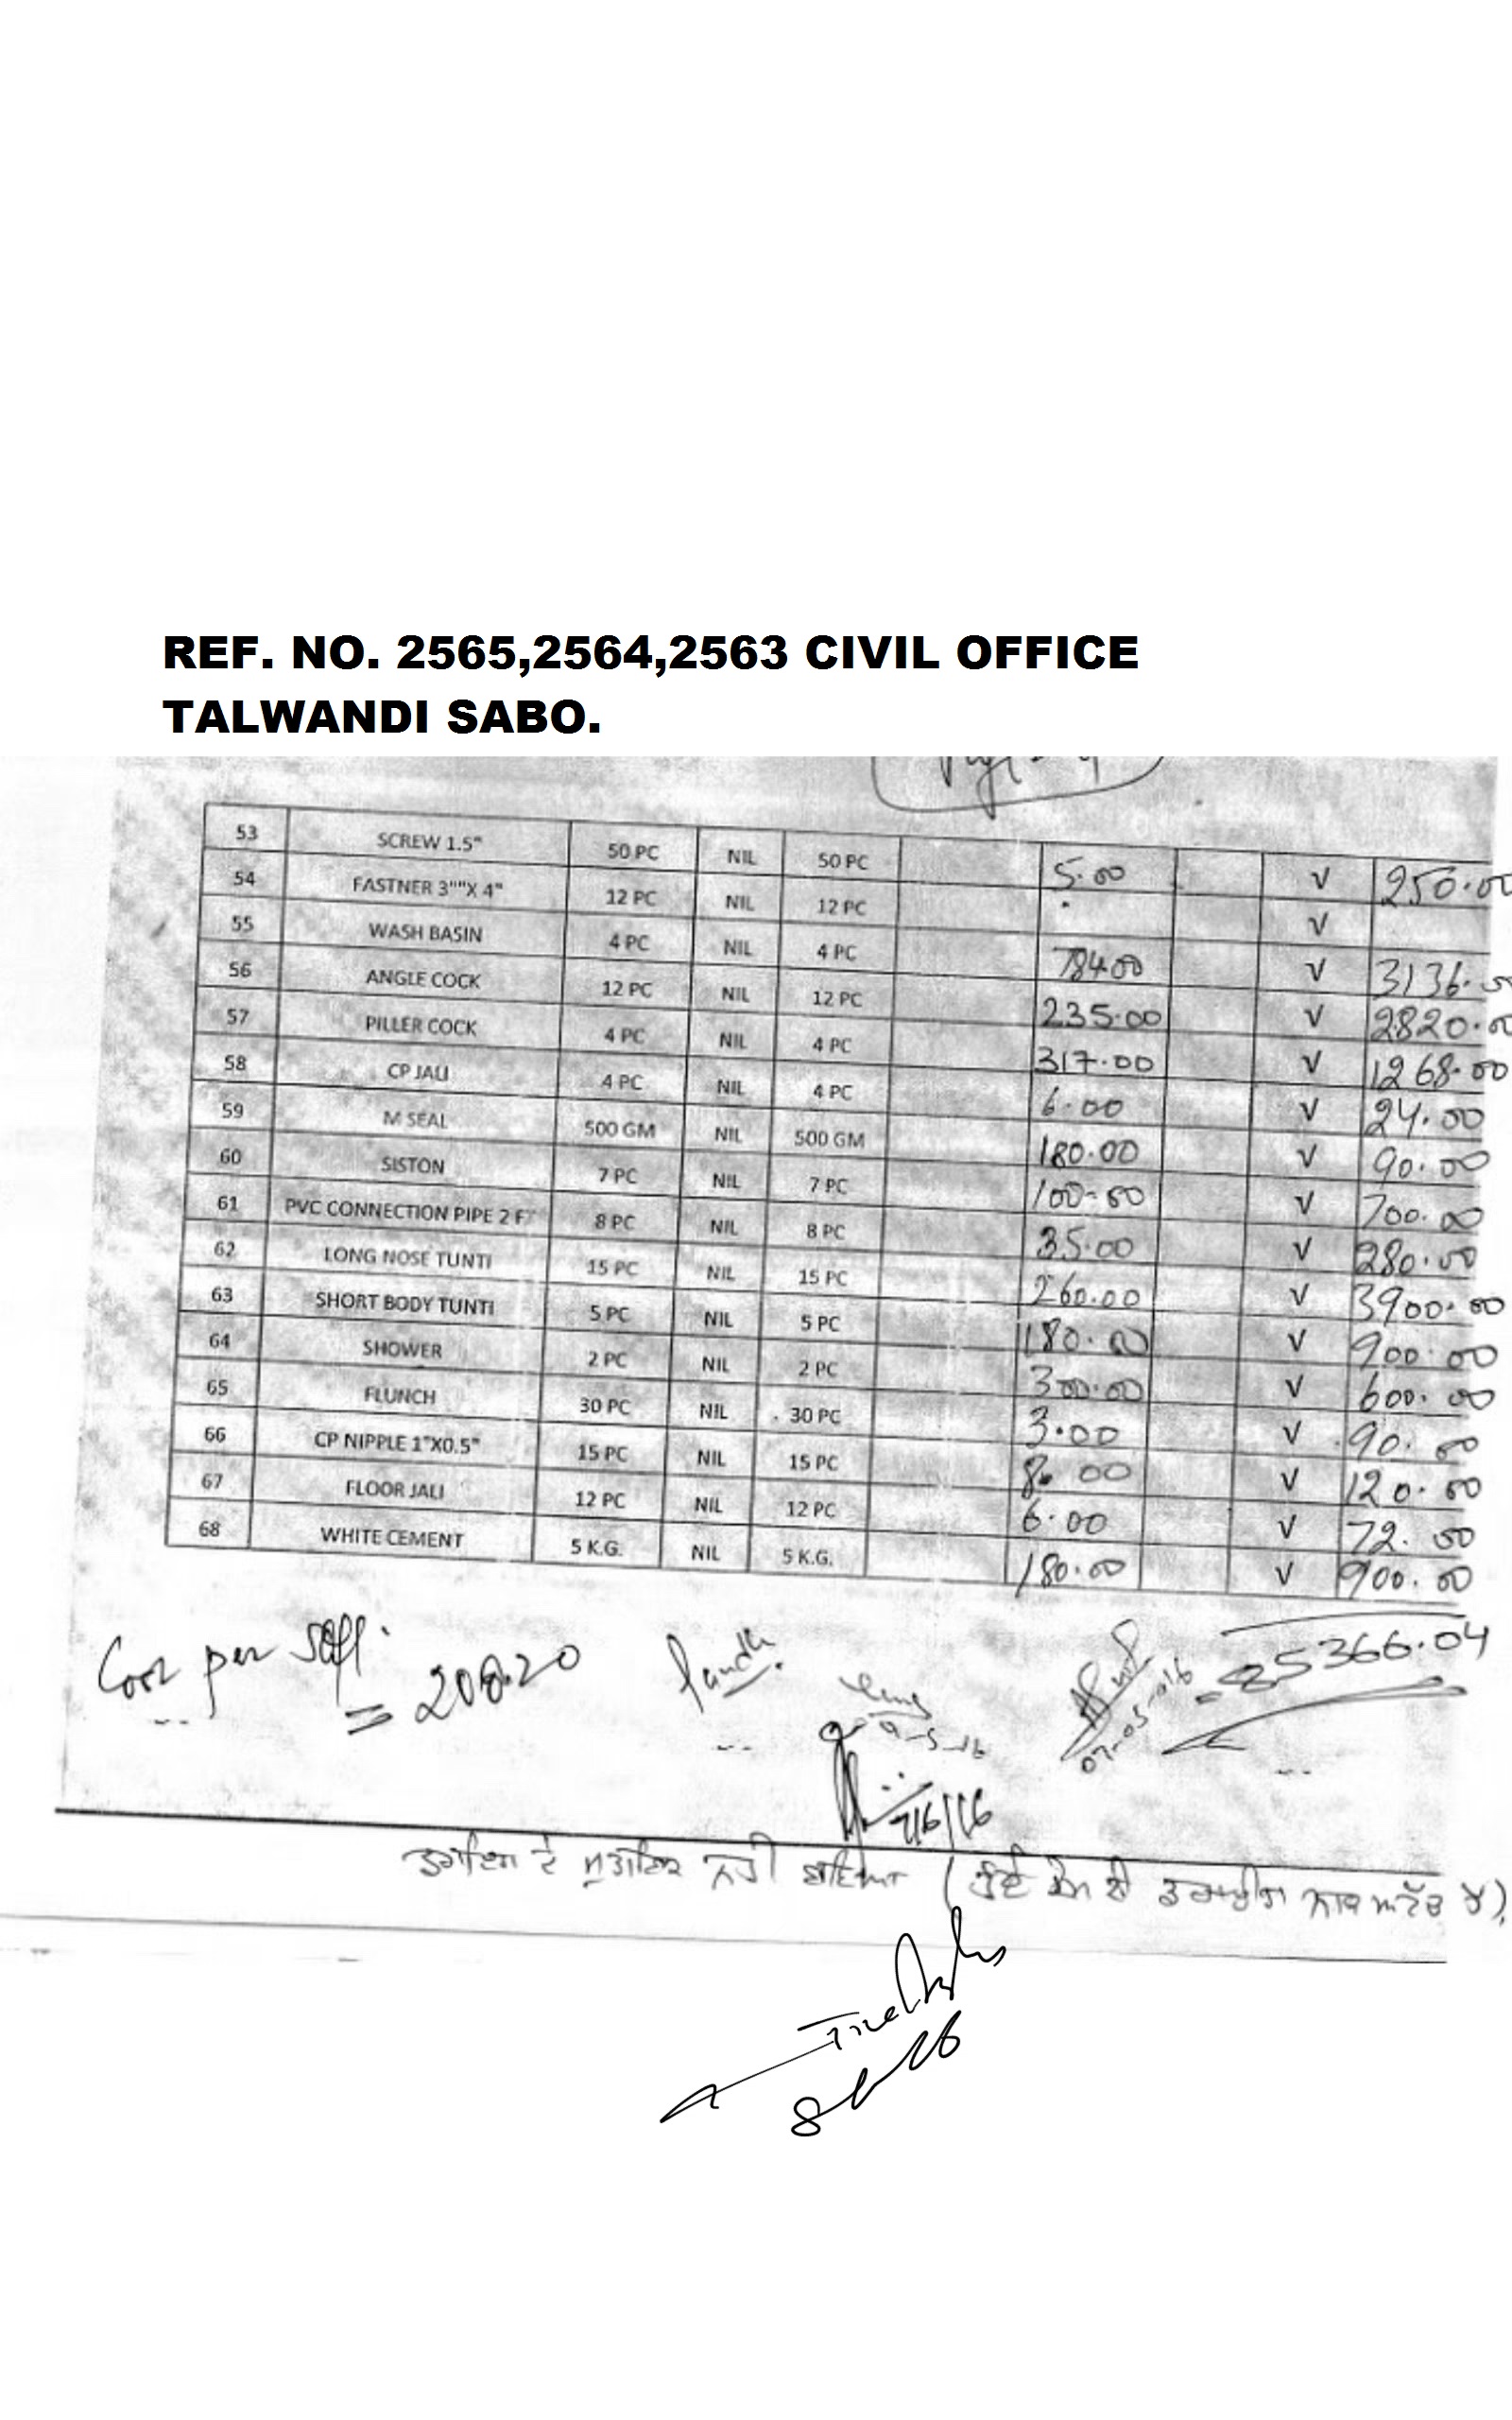 REF. NO. 2565,2564,2563 CIVIL OFFICE
TALWANDI SABO.
53 SCREW 1.5" 50 PC NIL 50 PC 5.00 √ 250.00
54 FASTNER 3""X 4" 12 PC NIL 12 PC √
55 WASH BASIN 4 PC NIL 4 PC 784.00 √ 3136.00
56 ANGLE COCK 12 PC NIL 12 PC 235.00 √ 2820.00
57 PILLER COCK 4 PC NIL 4 PC 317.00 √ 1268.00
58 CP JALI 4 PC NIL 4 PC 6.00 √ 24.00
59 M SEAL 500 GM NIL 500 GM 180.00 √ 90.00
60 SISTON 7 PC NIL 7 PC 100.00 √ 700.00
61 PVC CONNECTION PIPE 2 FT 8 PC NIL 8 PC 35.00 √ 280.00
62 LONG NOSE TUNTI 15 PC NIL 15 PC 260.00 √ 3900.00
63 SHORT BODY TUNTI 5 PC NIL 5 PC 180.00 √ 900.00
64 SHOWER 2 PC NIL 2 PC 300.00 √ 600.00
65 FLUNCH 30 PC NIL 30 PC 3.00 √ 90.00
66 CP NIPPLE 1"X0.5" 15 PC NIL 15 PC 8.00 √ 120.00
67 FLOOR JALI 12 PC NIL 12 PC 6.00 √ 72.00
68 WHITE CEMENT 5 K.G. NIL 5 K.G. 180.00 √ 900.00
85366.04
Cost per
= 208.20
9-5-16
07-05-016
7/6/16
ਦੇ ਮੁਤਾਬਿਕ ਨਹੀਂ